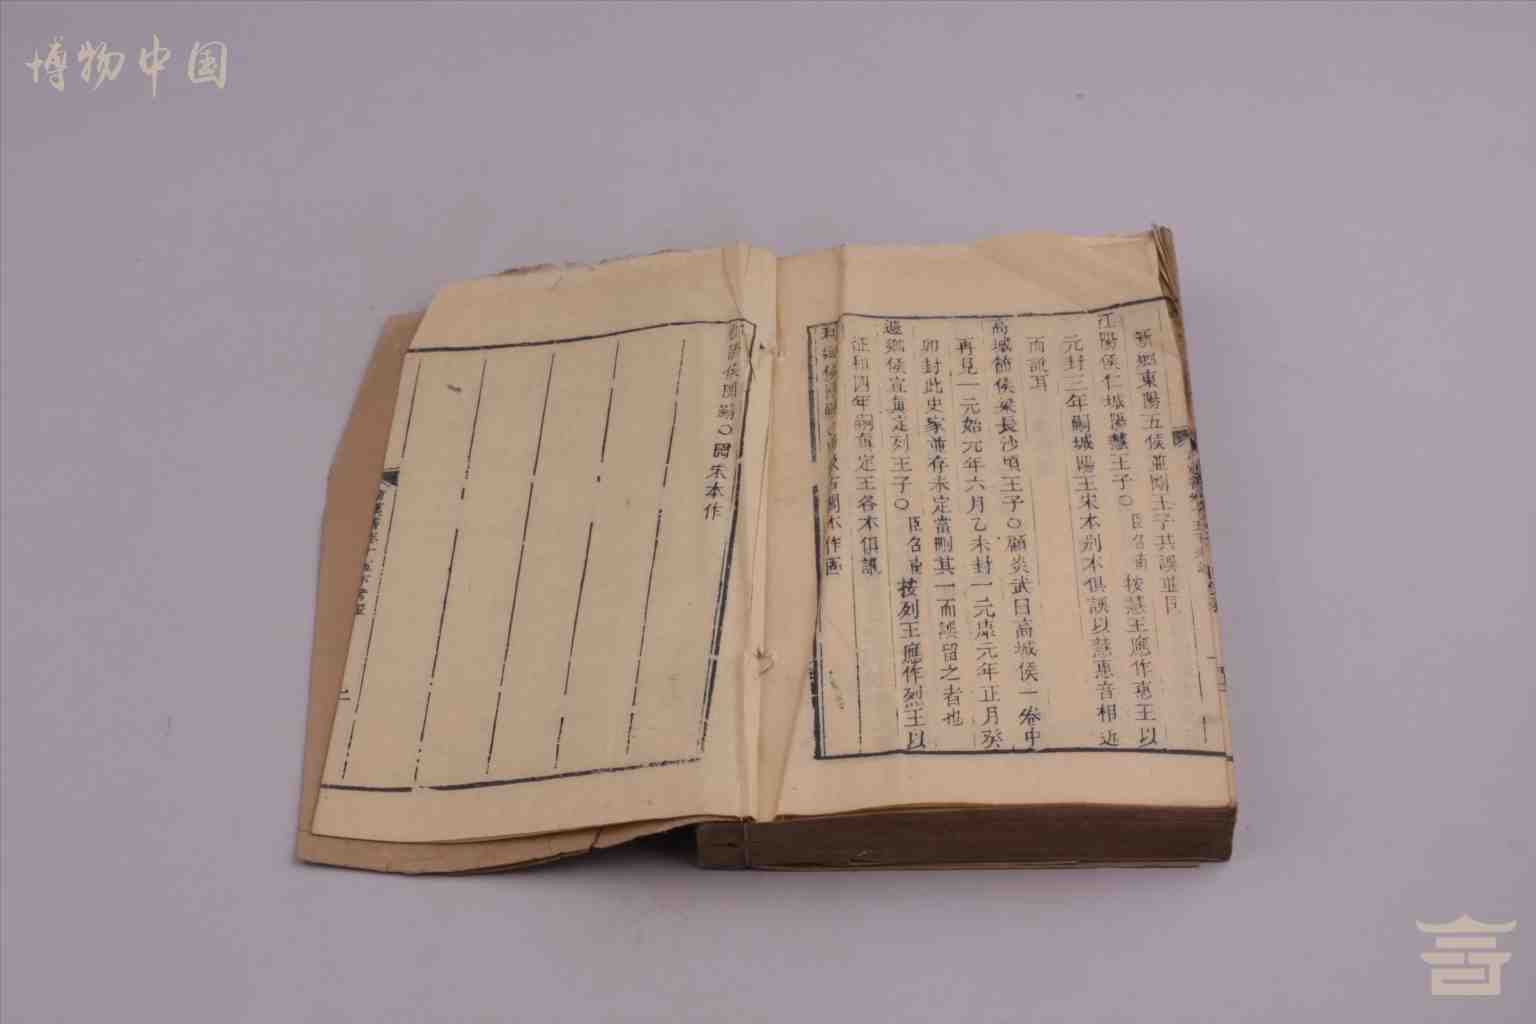 博物中国
新鄉東陽五侯並剛王子共誤並同
江陽侯仁城陽慧王子○臣召南按慧王應作惠王以
元封三年嗣城陽王宋本別本俱誤以慧惠音相近
而訛耳
高城節侯梁長沙頃王子○顧炎武曰高城侯一卷中
再見一元始元年六月乙未封一元康元年正月癸
卯封此史家並存未定當刪其一而誤留之者也
遽鄉侯宣真定列王子○臣召南按列王應作烈王以
征和四年嗣真定王各本俱訛
侯
○監本作
侯
○閩宋本作
二